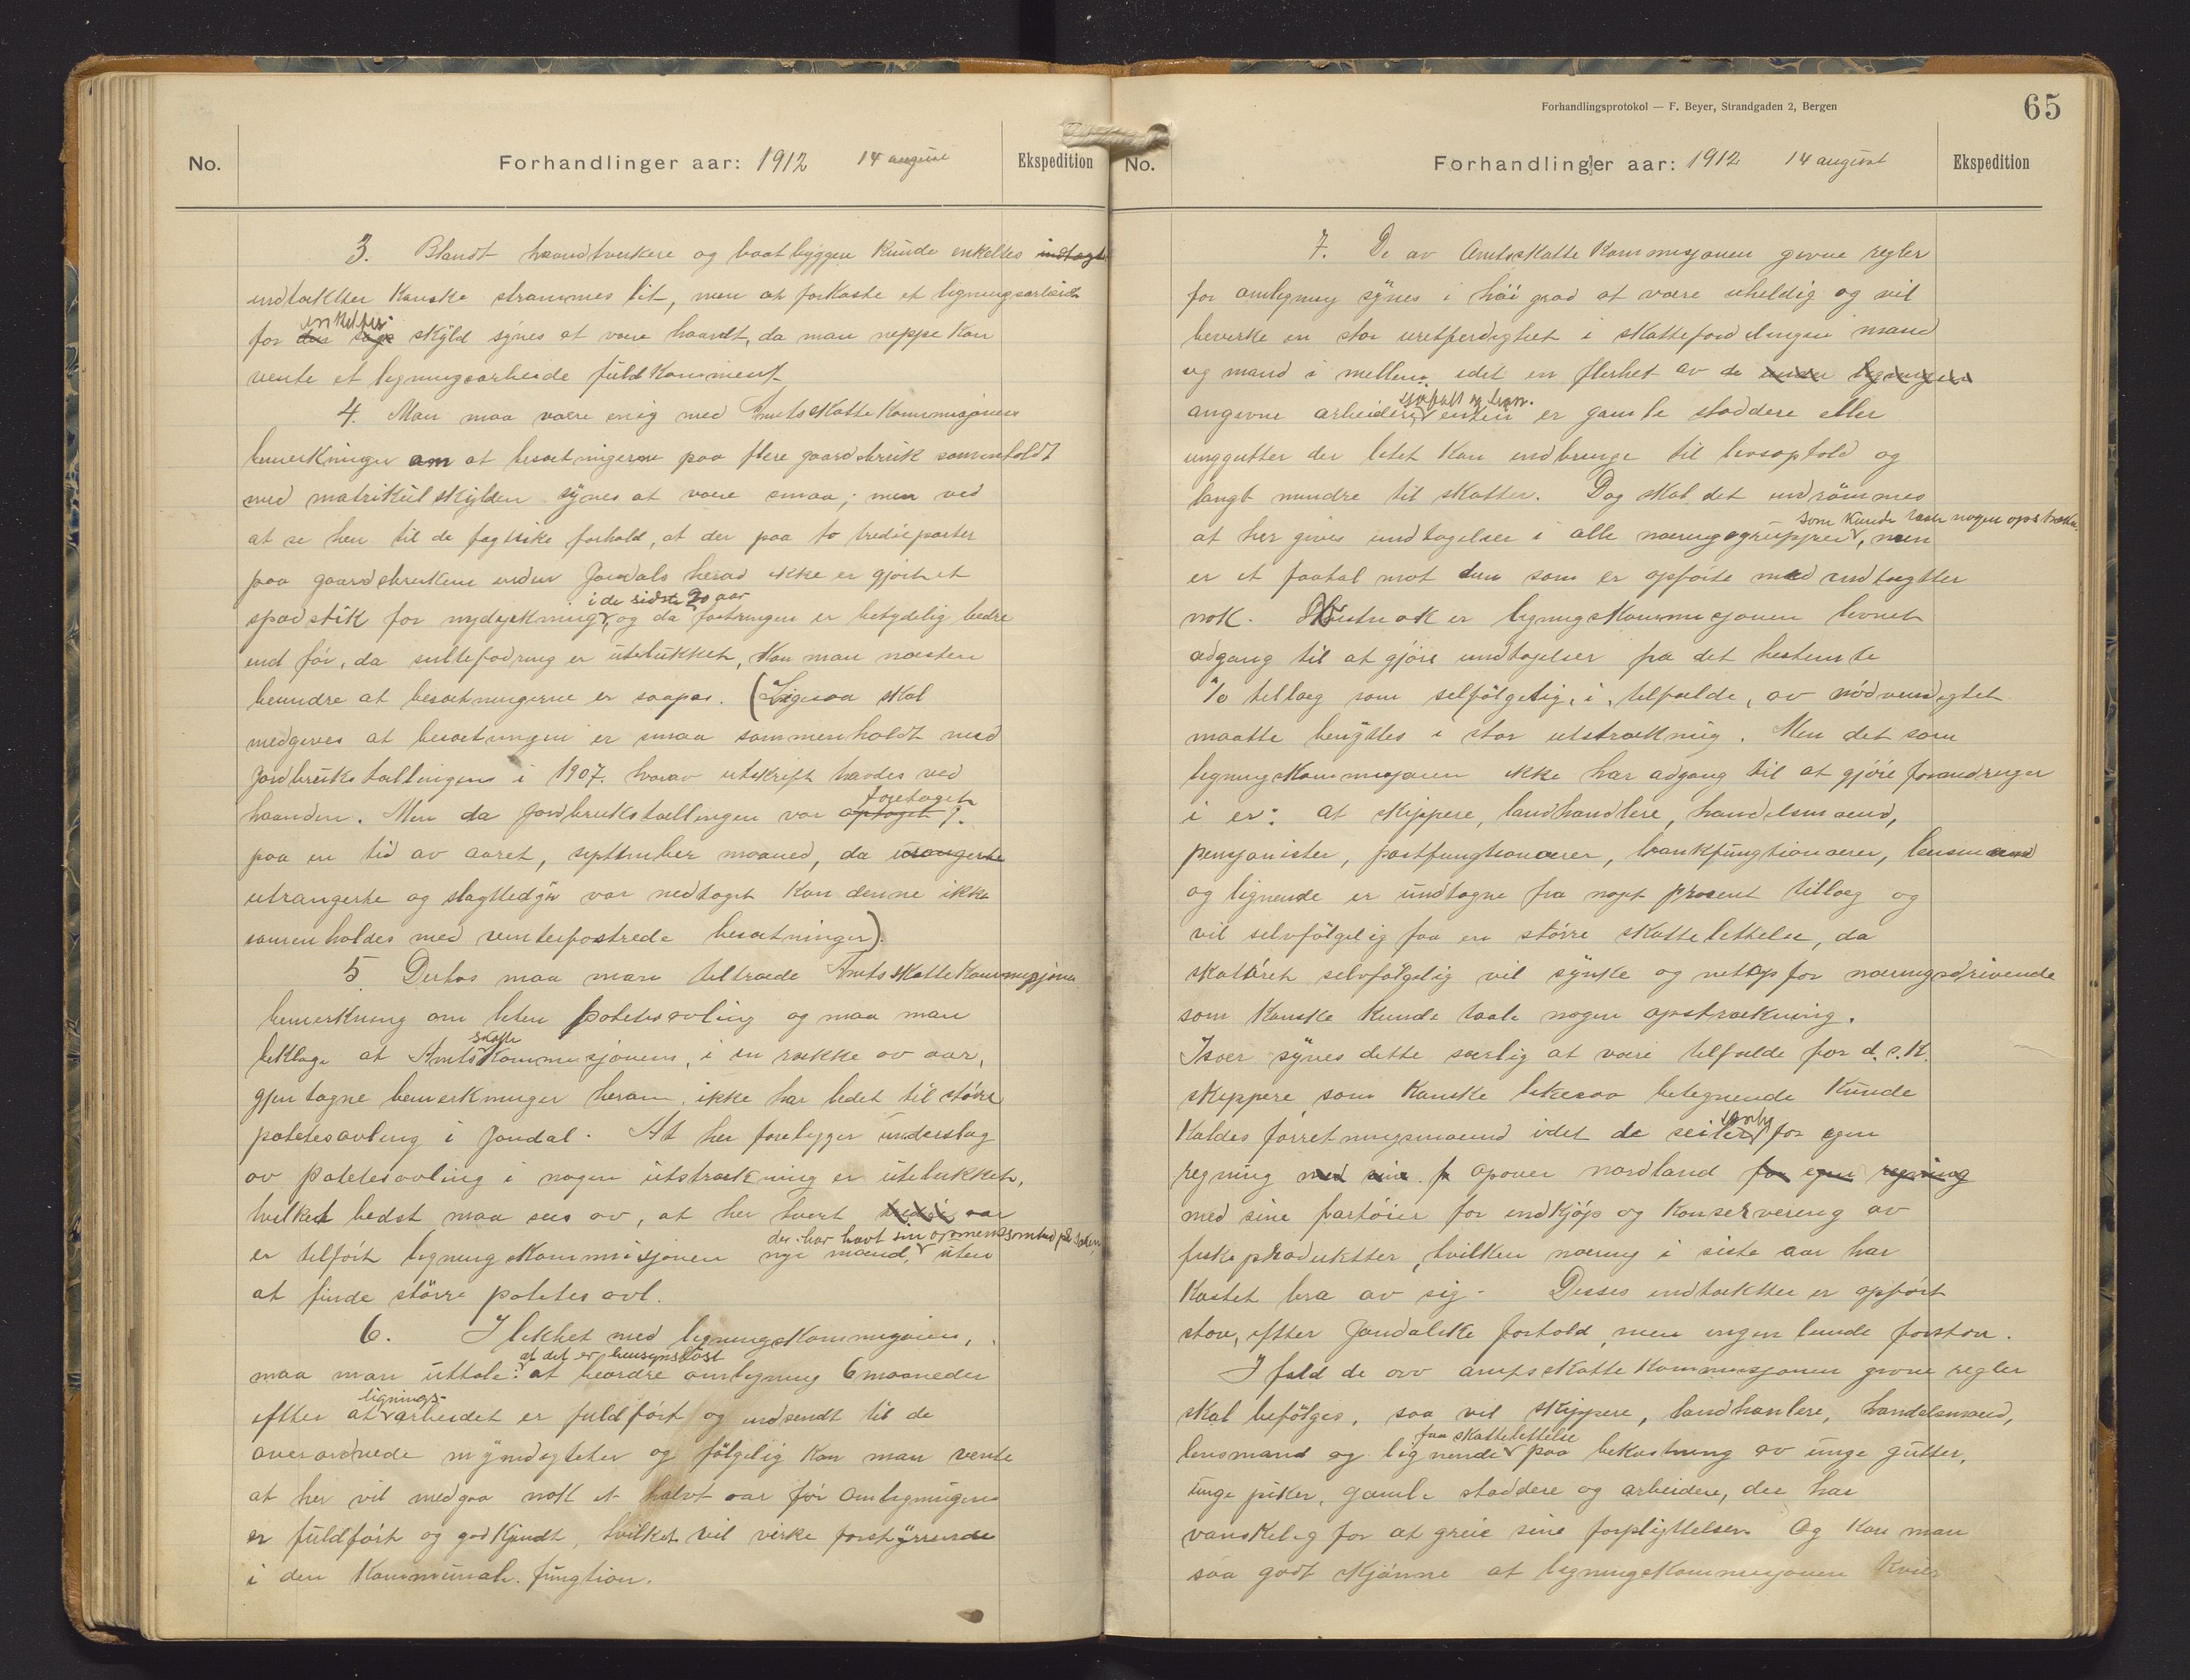 No.
Forhandlinger aar: 1912 14 august
Ekspedition
3. Blandt haandverkere og baatbyggere kunde enkeltes indtægt
indtækter kanske strammes lit, men at forkaste et ligningsarbeide
enkeltes
for skyld synes at være haardt, da man neppe kan
vente et ligningsarbeide fuldkomment.
4. Man maa være enig med Amtsskattekommisjonens
bemerkninger om at besætningerne paa flere gaardsbruk sammenholdt
med matrikulskylden synes at være smaa; men ved
at se hen til de fagtiske forhold, at der paa to trediеparter
paa gaardsbrukene inden Jondals herad ikke er gjort et
i de sidste 20 aar
spadstik for nydyrkning, og da fostringen er betydelig bedre
end før, da sultefodring er utelukket, kan man næsten
beundre at besætningerne er saapas. (Ligesaa skal
medgives at besætningen er smaa sammenholdt med
Jordbrukstællingens i 1907. hvorav utskrift havdes ved
foretaget
haanden. Men da Jordbrukstællingen var optaget
paa en tid av aaret, september maaned, da utrangerte
utrangerte og slagttedyr var nedtaget kan denne ikke
sammenholdes med vinterfostrede besætninger).
5. Dertas maa man tiltræde Amtsskattekommisjonens
bemerkning om liten potetesavling og maa man
skatte
beklage at Amtskommisjonens, i en række av aar,
gjentagne bemerkninger herom, ikke har ledet til større
potetesavling i Jondal. At her foreligger underslag
av potetesavling i nogen utstrækning er utelukket,
hvilket bedst maa sees av, at her hvert tredie aar
der har havt sin opmerksomhed paa saken
er tilført ligningskommisjonen nye mænd, uten
at finde større potetesavl.
6. I likhet med ligningskommisjonen,
at det er hensynsløst
maa man uttale: at beordre omligning 6 maaneder
lignings-
efter at arbeidet er fuldført og indsendt til de
overordnede myndigheter og følgelig kan man vente
at her vil medgaa nok et halvt aar før omligningen
er fuldført og godkjendt, hvilket vil virke forstyrrende
i den kommunale fungtion.
Forhandlingsprotokol — F. Beyer, Strandgaden 2, Bergen
65
No.
Forhandlinger aar: 1912 14 august
Ekspedition
7. De av Amtsskattekommisjonen givne regler
for omligning synes i høi grad at være uheldig og vil
bevirke en stor uretferdighet i skattefordelingen mand
og mand i mellem idet en flerhet av de under ligningen
sjøfolk og lign.
angivne arbeidere enten er gamle stoddere eller
unggutter der litet kan indbringe til livsophold og
langt mindre til skatter. Dog skal det indrømmes
som kunde taale nogen opstrækn.
at her gives undtagelser i alle næringsgrupper, men
er et faatal mot dem som er opførte med indtægtter
nok. Vistnok er ligningskommisjonen levnet
adgang til at gjøre undtagelser fra det bestemte
% tillæg som selfølgelig, i tilfælde, av nødvendighet
maatte benyttes i stor utstrækning. Men det som
ligningskommisjonen ikke har adgang til at gjøre forandringer
i er: at skippere, landhandlere, handelsmænd,
pensjonister, postfungtionærer, bankfungtionærer, lensmænd
og lignende er undtagne fra noget prosent tillæg og
vil selvfølgelig faa en større skattelettelse, da
skatøret selvfølgelig vil synke og netop for næringsdrivende
som kanske kunde taale nogen opstrækning.
Især synes dette særlig at være tilfælde for d.s.k.
skippere som kanske likesaa betegnende kunde
særlig
kaldes forretningsmænd idet de seiler for egen
regning med sine opover nordland for egen regning
med sine fartøier for indkjøp og konservering av
fiskeproduktter, hvilken næring i siste aar har
kastet bra av sig. Disses indtækter er opført
store, efter Jondalske forhold, men ingenlunde for store.
I fald de av amtsskattekommisjonen givne regler
skal befølges, saa vil skippere, landhanlere, handelsmænd,
faa skattelettelse
lensmand og lignende paa bekostning av unge gutter,
unge piker, gamle stoddere og arbeidere, der har
vanskelig for at greie sine forpligttelser. Og kan man
saa godt skjønne at ligningskommisjonen kvier